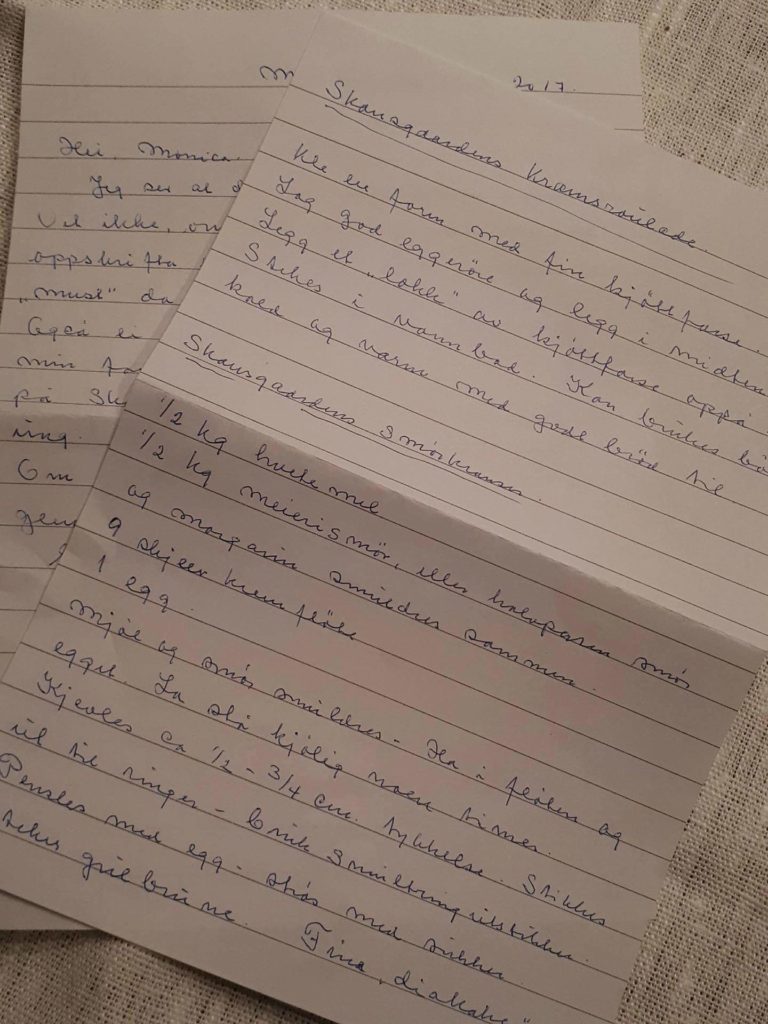 2017.
Hei, Monica.
Jeg ser at d
Vet ikke, om
oppskrifta
"must" da
Også ei
min fa
på Sk
ing.
Skansgaardens Kramsroulade
Kle en form med fin kjøttfarse.
Lag god eggerøre og legg i midten
Legg et "lokk" av kjøttfarse oppå
Stekes i vannbad. Kan brukes bå
kald og varm med gode brød til
Skansgaardens Smørkranser.
1/2 kg hvetemel
1/2 kg meierismør, eller halvparten smør
og margarin smuldres sammen.
9 skjeer kremfløte
1 egg.
Mjøl og smør smuldres - Ha i fløten og
egget. La stå kjølig noen timer.
Kjevles ca 1/2 - 3/4 cm. tykkelse. Stikkes
ut til ringer - bruk smultringutstikker.
Pensles med egg - strøs med sukker.
stekes gulbrune. Fine,